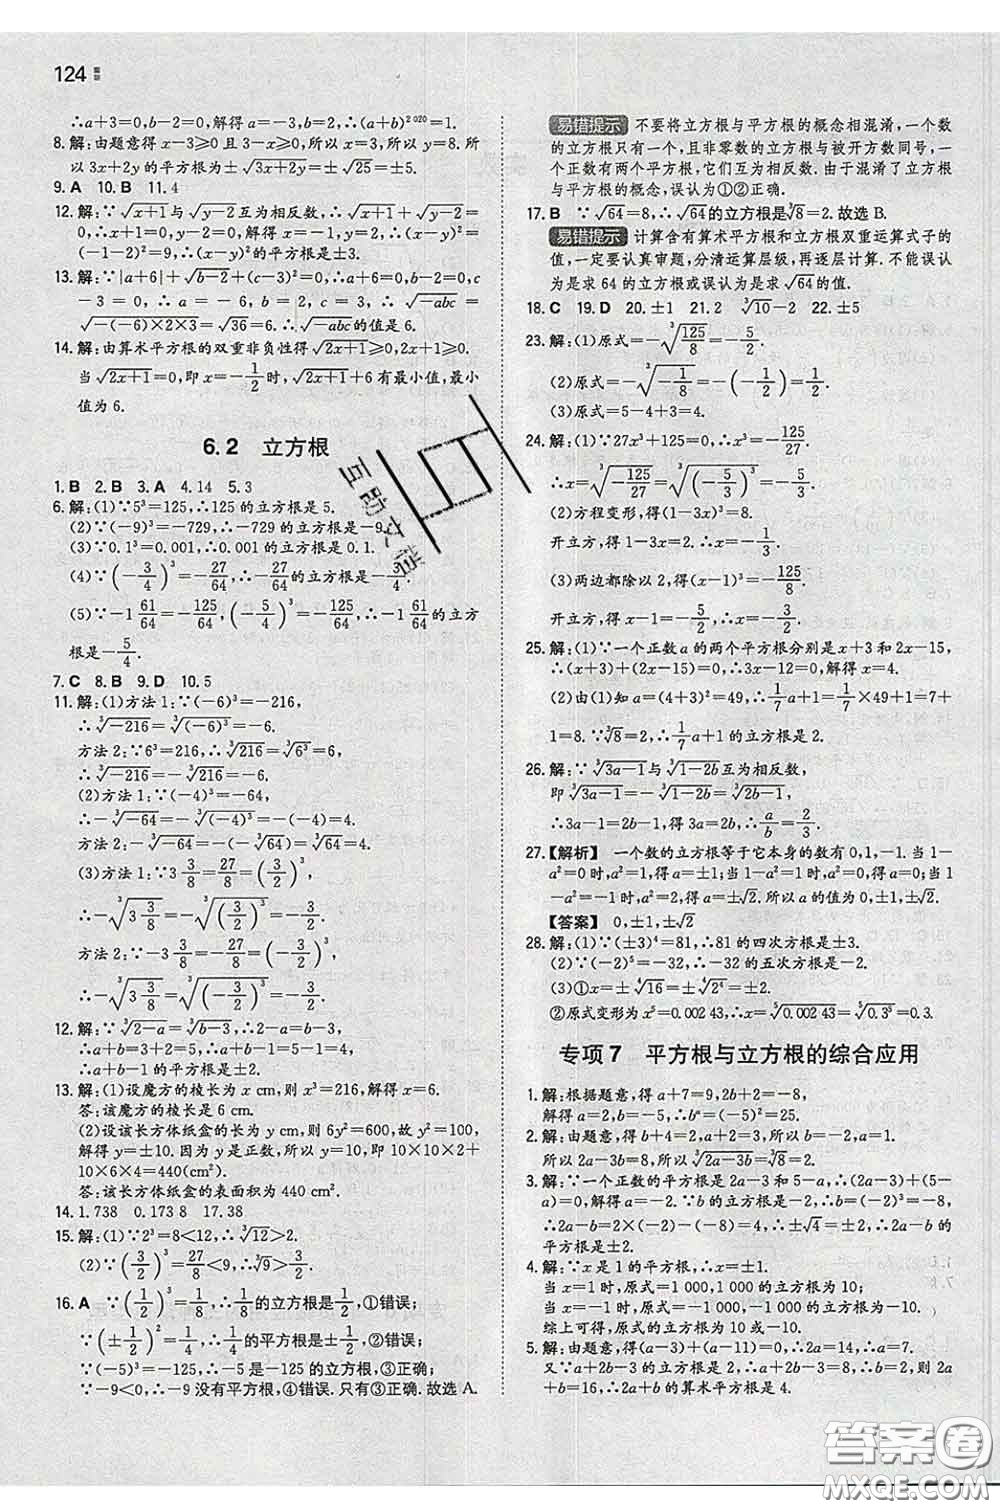 124
∴a+3=0,b-2=0,解得a=-3,b=2,∴(a+b)²⁰²⁰=1.
8. 解:由题意得x-3⩾0且3-x⩾0,所以x=3,所以y=8.
所以3x+2y的平方根为±√(3x+2y)=±√25=±5.
9. A 10. B 11. 4
12. 解:∵√(x+1)与√(y-2)互为相反数,∴√(x+1)+√(y-2)=
0,∴x+1=0,y-2=0,解得x=-1,y=2,∴(x-y)²=
(-1-2)²=9,∴(x-y)²的平方根是±3.
13. 解:∵|a+6|+√(b-2)+(c-3)²=0,∴a+6=0,b-2=0,c
-3=0,∴a=-6,b=2,c=3,∴√(-abc)=
√(-(-6)×2×3)=√36=6.∴√(-abc)的值是6.
14. 解:由算术平方根的双重非负性得√(2x+1)⩾0,2x+1⩾0.
当√(2x+1)=0,即x=-1/2时,√(2x+1)+6有最小值,最小
值为6.
6.2 立方根
1. B 2. B 3. A 4. 14 5. 3
6. 解:(1)∵5³=125,∴125的立方根是5.
(2)∵(-9)³=-729,∴-729的立方根是-9.
(3)∵0.1³=0.001,∴0.001的立方根是0.1.
(4)∵(-3/4)³=-27/64,∴-27/64的立方根是-3/4.
(5)∵-1 61/64=-125/64,(-5/4)³=-125/64,∴-1 61/64的立方
根是-5/4.
7. C 8. B 9. D 10. 5
11. 解:(1)方法1:∵(-6)³=-216,
∴∛(-216)=∛((-6)³)=-6.
方法2:∵6³=216,∴∛216=∛(6³)=6,
∴∛(-216)=-∛216=-6.
(2)方法1:∵(-4)³=-64,
∴-∛(-64)=-∛((-4)³)=-(-4)=4.
方法2:-∛(-64)=-(-∛64)=∛64=4.
(3)方法1:∵3 3/8=27/8=(3/2)³,
∴-∛(3 3/8)=-∛(27/8)=-∛((3/2)³)=-3/2.
方法2:∵-3 3/8=-27/8=(-3/2)³,
∴-∛(3 3/8)=∛(-3 3/8)=∛((-3/2)³)=-3/2.
12. 解:∵∛(2-a)=∛(b-3),∴2-a=b-3,
∴a+b=3+2=5,∴a+b-4=5-4=1,
∴a+b-4的平方根是±1.
13. 解:(1)设魔方的棱长为x cm,则x³=216,解得x=6.
答:该魔方的棱长是6 cm.
(2)设该长方体纸盒的长为y cm,则6y²=600,故y²=100,
解得y=±10.因为y是正数,所以y=10,即10×10×2+
10×6×4=440(cm²).
答:该长方体纸盒的表面积为440 cm².
14. 1.738 0.173 8 17.38
15. 解:(1)∵2³=8<12,∴∛12>2.
(2)∵(3/2)³=27/8<9,∴∛9>3/2.
16. A ∵(1/2)³=1/8,∴1/8的立方根是1/2,①错误;
∵(±1/2)²=1/4,∴1/4的平方根是±1/2,②错误;
∵(-5)³=-125,∴-5是-125的立方根,③正确;
∵-9<0,∴-9没有平方根,④错误.只有③正确.故选A.
易错提示 不要将立方根与平方根的概念相混淆,一个数
的立方根只有一个,且非零数的立方根与被开方数同号,一
个正数有两个平方根,它们互为相反数.由于混淆了立方根
与平方根的概念,误认为①②正确.
17. B ∵√64=8,∴√64的立方根是∛8=2.故选B.
易错提示 计算含有算术平方根和立方根双重运算式子的
值,一定要认真审题,分清运算层级,再逐层计算.不能误认
为是求64的立方根或误认为是求√64的值.
18. C 19. D 20. ±1 21. 2 ∛10-2 22. ±5
23. 解:(1)原式=-∛(125/8)=-5/2.
(2)原式=-∛(-1/8)=-(-1/2)=1/2.
(3)原式=5-4+3=4.
24. 解:(1)∵27x³+125=0,∴x³=-125/27,
∴x=∛(-125/27)=∛((-5/3)³)=-5/3.
(2)方程变形,得(1-3x)³=8.
开立方,得1-3x=2,∴x=-1/3.
(3)两边都除以2,得(x-1)³=-125/8.
开立方,得x-1=-5/2,∴x=-3/2.
25. 解:(1)∵一个正数a的两个平方根分别是x+3和2x-15,
∴(x+3)+(2x-15)=0,∴3x-12=0,解得x=4.
(2)由(1)知a=(4+3)²=49,∴1/7a+1=1/7×49+1=7+
1=8.∵∛8=2,∴1/7a+1的立方根是2.
26. 解:∵∛(3a-1)与∛(1-2b)互为相反数,
即∛(3a-1)=-∛(1-2b)=∛(2b-1),
∴3a-1=2b-1,得3a=2b,∴a/b=2/3.
27. 【解析】 一个数的立方根等于它本身的数有0,1,-1.当1-
a²=0时,a²=1,则a=±1;当1-a²=1时,得a=0;当1-a²=
-1时,得a²=2,a=±√2.所以a的值为0,±1,±√2.
【答案】 0,±1,±√2
28. 解:(1)∵(±3)⁴=81,∴81的四次方根是±3.
(2)∵(-2)⁵=-32,∴-32的五次方根是-2.
(3)①x=±∜16=±∜(2⁴)=±2.
②原式变形为x⁵=0.002 43,∴x=⁵√0.002 43=⁵√(0.3⁵)=0.3.
专项7 平方根与立方根的综合应用
1. 解:根据题意,得a+7=9,2b+2=-8,
解得a=2,b=-5,∴bᵃ=(-5)²=25.
2. 解:由题意,得b+4=2,a+2=3,所以b=-2,a=1.
所以2a-3b=8,所以∛(2a-3b)=∛8=2.
3. 解:∵一个正数的平方根是2a-3和5-a,∴(2a-3)+(5-
a)=0.解得a=-2.∵b的立方根是-2,∴b=(-2)³=-8,
∴2a-b=2×(-2)-(-8)=4,∴±√4=±2,∴2a-b的
平方根是±2.
4. 解:∵x是1的平方根,∴x=±1.
当x=1时,原式=1 000,1 000的立方根为10;
当x=-1时,原式=-1 000,-1 000的立方根为-10.
综上可得,原式的立方根为10或-10.
5. 解:由题意,得(a-3)+(a-11)=0,∴2a=14,∴a=7.
又∵a+2b-3的立方根是2,∴a+2b-3=8,∴b=2,则
2a+b=16,∴2a+b的算术平方根是4.
互助文档
答案圈
MXQE.COM